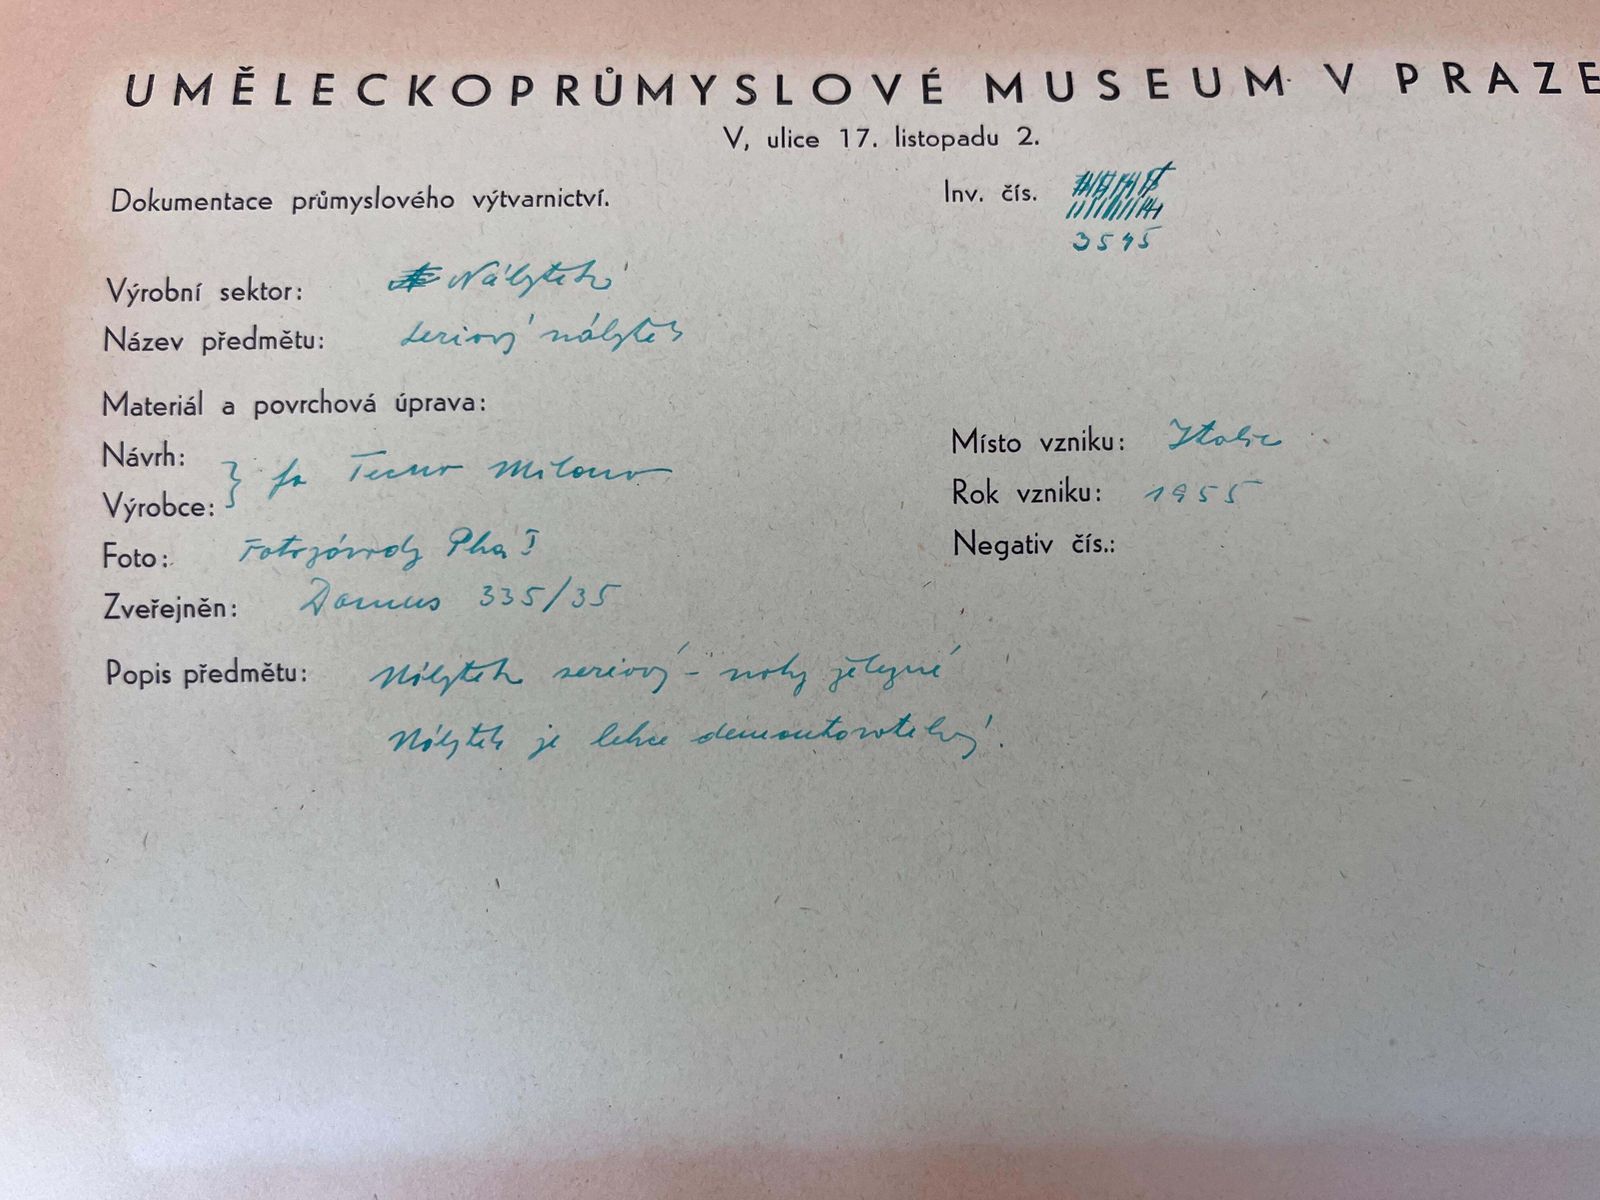 UMĚLECKOPRŮMYSLOVÉ MUSEUM V PRAZE
V, ulice 17. listopadu 2.
Dokumentace průmyslového výtvarnictví.
Inv. čís.
3545
Výrobní sektor: Nábytek
Název předmětu: seriový nábytek
Materiál a povrchová úprava:
Návrh:
Výrobce: } fa Tecno Milano
Místo vzniku: Italie
Rok vzniku: 1955
Foto: Fotozávody Pha I
Negativ čís.:
Zveřejněn: Domus 335/35
Popis předmětu: Nábytek seriový - nohy železné
Nábytek je lehce demontovatelný.